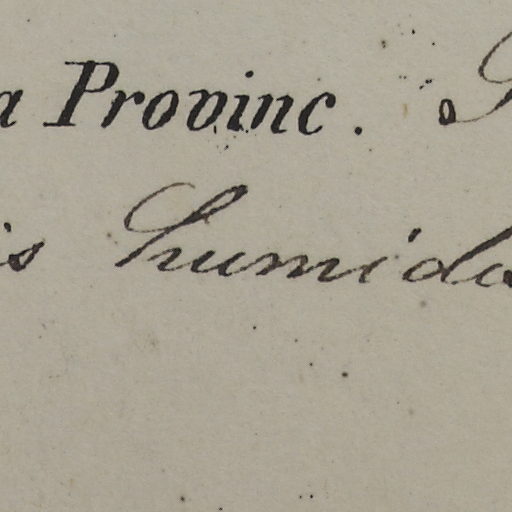 a Provinc.
is humida